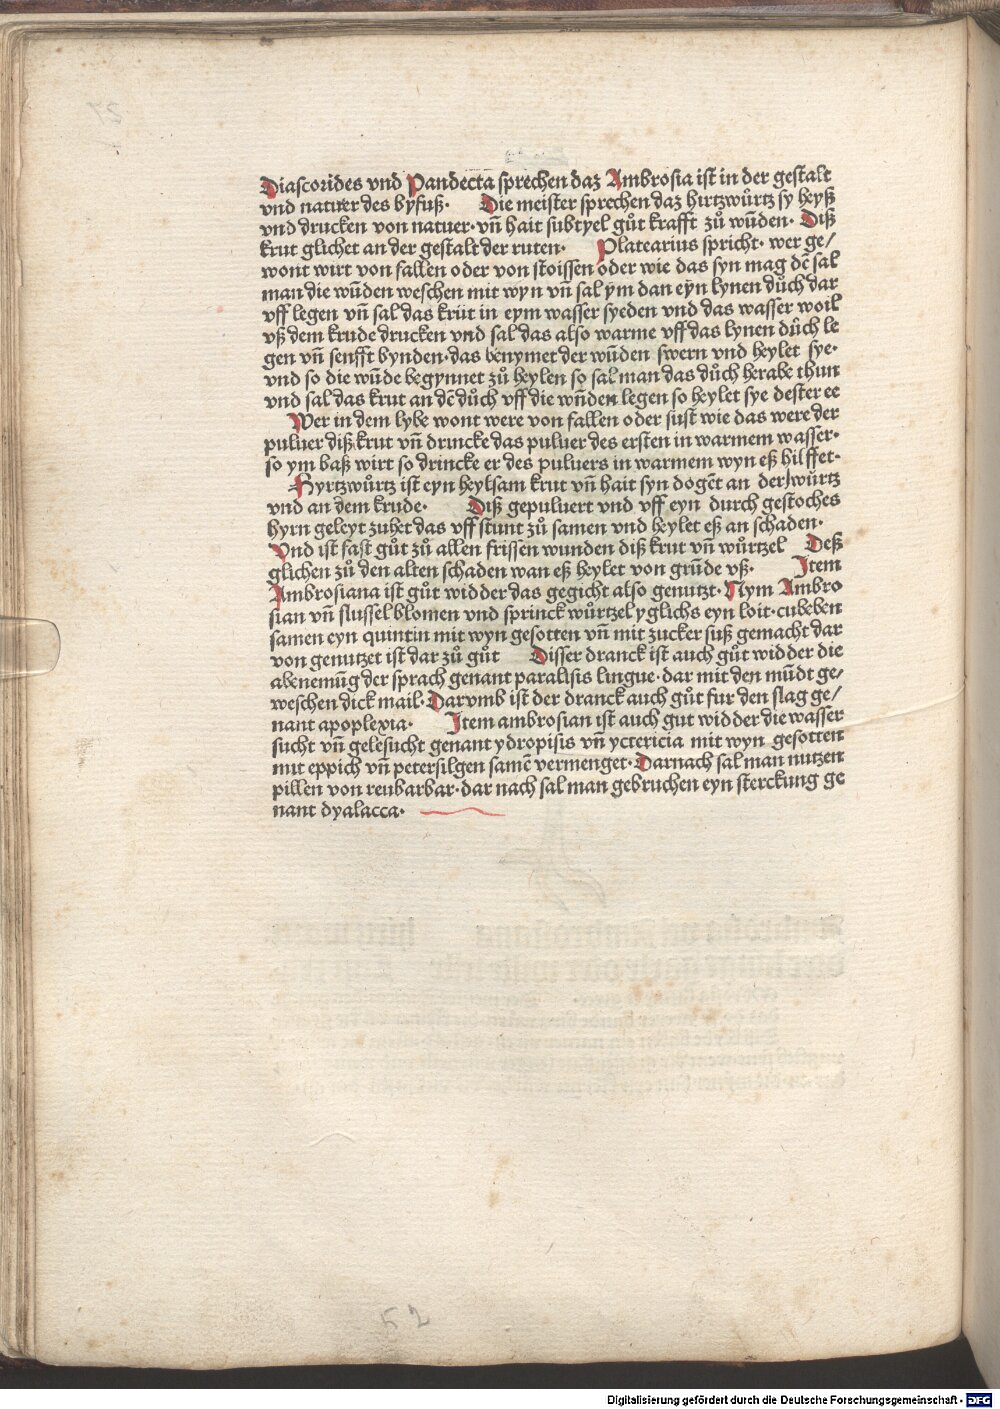 Diascorides vnd Pandecta sprechen daz Ambrosia ist in der gestalt
vnd natuer des byfuß· Die meister sprechen daz hirtzwůrtz sy heyß
vnd drucken von natuer· vn̄ hait subtyel gůt krafft zů wūden· Diß
krut glichet an der gestalt der ruten· Platearius spricht· wer ge/
wont wirt von fallen oder von stoissen oder wie das syn mag dē sal
man die wūden weschen mit wyn vn̄ sal ym dan eyn lynen důch dar
vff legen vn̄ sal das krüt in eym wasser syeden vnd das wasser woil
vß dem krude drucken vnd sal das also warme vff das lynen důch le
gen vn̄ senfft bynden· das benymet der wūden swern vnd heylet sye·
vnd so die wūde begynnet zů heylen so sal man das důch herabe thun
vnd sal das krut an dē důch vff die wūden legen so heylet sye dester ee
Wer in dem lybe wont were von fallen oder sust wie das were der
puluer diß krut vn̄ drincke das puluer des ersten in warmem wasser·
so ym baß wirt so drincke er des puluers in warmem wyn eß hilffet·
Hyrtzwůrtz ist eyn heylsam krut vn̄ hait syn dogēt an der wůrtz
vnd an dem krude· Diß gepuluert vnd vff eyn durch gestoches
hyrn geleyt zuhet das vff stunt zů samen vnd heylet eß an schaden·
Vnd ist fast gůt zů allen frissen wunden diß krut vn̄ wůrtzel Deß
glichen zů den alten schaden wan eß heylet von grūde vß· Item
Ambrosiana ist gůt widder das gegicht also genutzt· Nym Ambro
sian vn̄ slussel blomen vnd sprinck wůrtzel yglichs eyn loit· cubeben
samen eyn quintin mit wyn gesotten vn̄ mit zucker suß gemacht dar
von genutzet ist dar zů gůt Disser dranck ist auch gůt widder die
abenemūg der sprach genant paralisis lingue· dar mit den mūdt ge/
weschen dick mail· Darvmb ist der dranck auch gůt fur den slag ge/
nant apoplexia· Item ambrosian ist auch gut widder die wasser
sucht vn̄ gelesucht genant ydropisis vn̄ yctericia mit wyn gesotten
mit eppich vn̄ petersilgen samē vermenget· Darnach sal man nutzen
pillen von reubarbar· dar nach sal man gebruchen eyn sterckung ge
nant dyalacca·
52
Digitalisierung gefördert durch die Deutsche Forschungsgemeinschaft - DFG